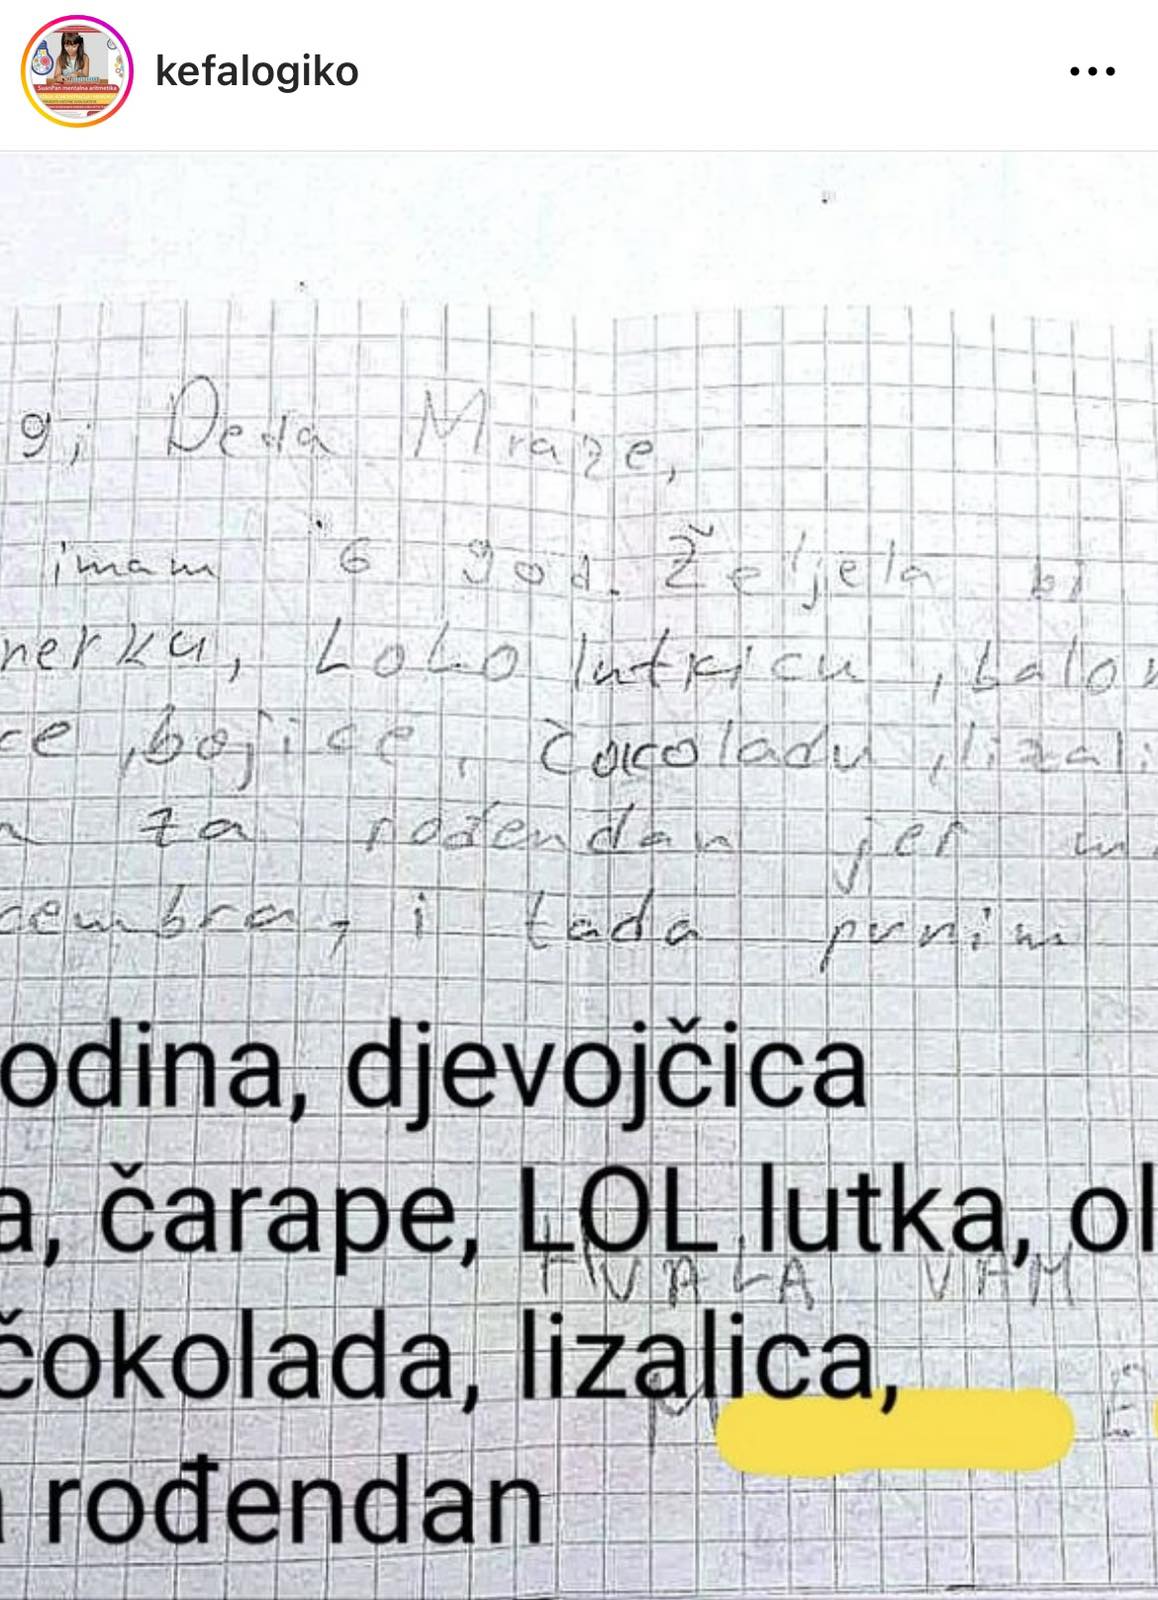 kefalogiko
SuanPan mentalna aritmetika
g; Deda Mraze,
imam 6 god. Željela bi
nerku, LoLo lutkicu, balon
ce, bojice, čokoladu, lizali
za rođendan jer
cembra, i tada prvnim
odina, djevojčica
a, čarape, LOL lutka, ol
HVALA VAM
čokolada, lizalica,
rođendan